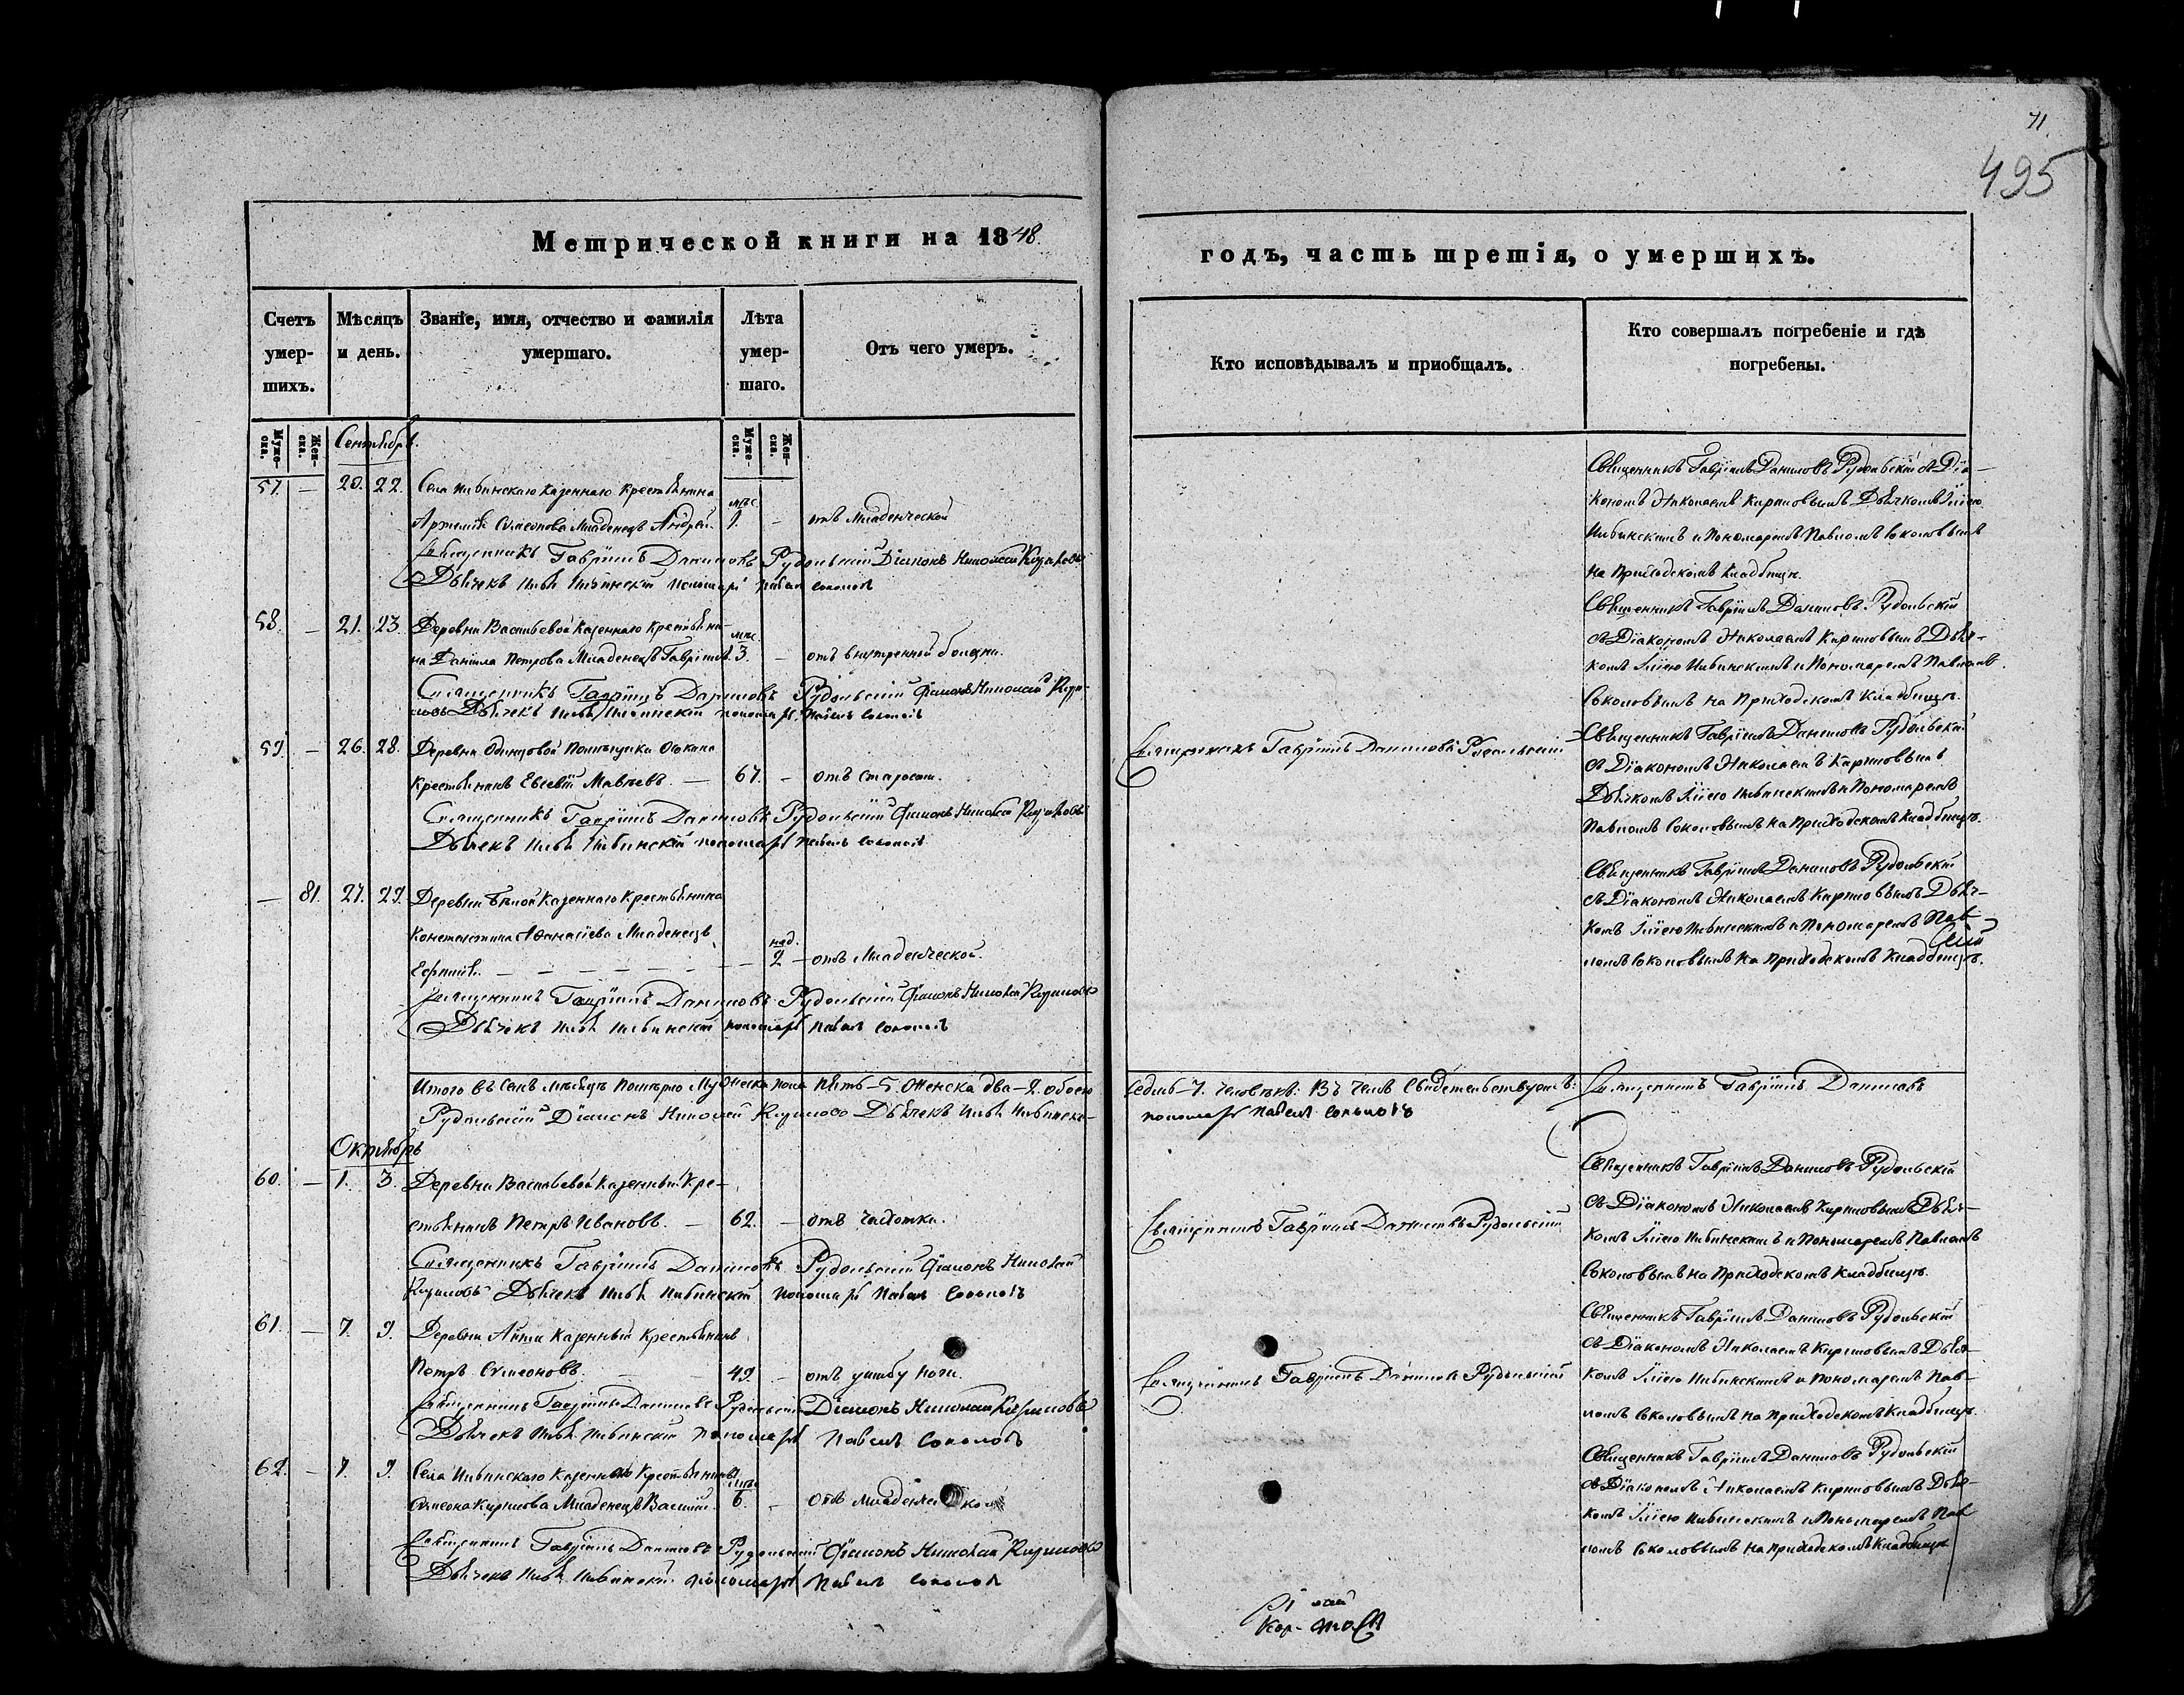 71.
495
Метрической книги на 1848.
годъ, часть третія, о умершихъ.
Счетъ умер-
шихъ.
Мѣсяцъ и день.
Званіе, имя, отчество и фамилія умершаго.
Лѣта умер-
шаго.
Отъ чего умеръ.
Кто исповѣдывалъ и приобщалъ.
Кто совершалъ погребеніе и гдѣ погребены.
Муже-
ска.
Жен-
ска.
Муже-
ска.
Жен-
ска.
Сентябрь.
57. — 20. 22. Села Ильинскаго казеннаго крестьянина
Артемія Симеонова младенецъ Андрей. мѣс. 9. — отъ младенческой
Священникъ Гавріилъ Даниловъ Рудольскій Діаконъ Николай Кириловъ
Дьячекъ Илья Ильинскій пономарь Павелъ Соколовъ
Священникъ Гавріилъ Даниловъ Рудольскій съ Діа-
кономъ Николаемъ Кириловымъ Дьячкомъ Ильею
Ильинскимъ и Пономаремъ Павломъ Соколовымъ
на Приходскомъ кладбищѣ.
58. — 21. 23. Деревни Васильевой казеннаго крестьяни-
на Данила Петрова младенецъ Гавріилъ. мѣс. 3. — отъ внутренней болѣзни.
Священникъ Гавріилъ Даниловъ Рудольскій Діаконъ Николай Кири-
ловъ Дьячекъ Илья Ильинскій пономарь Павелъ Соколовъ
Священникъ Гавріилъ Даниловъ Рудольскій
съ Діакономъ Николаемъ Кириловымъ Дьяч-
комъ Ильею Ильинскимъ и Пономаремъ Павломъ
Соколовымъ на Приходскомъ кладбищѣ.
59. — 26. 28. Деревни Одинцовой помѣщика
крестьянинъ Евсевій — 67. — отъ старости.
Священникъ Гавріилъ Даниловъ Рудольскій Діаконъ Николай Кириловъ
Дьячекъ Илья Ильинскій пономарь Павелъ Соколовъ
Священникъ Гавріилъ Даниловъ Рудольскій
Священникъ Гавріилъ Даниловъ Рудольскій
съ Діакономъ Николаемъ Кириловымъ
Дьячкомъ Ильею Ильинскимъ и Пономаремъ
Павломъ Соколовымъ на Приходскомъ кладбищѣ.
— 81. 27. 29. Деревни казеннаго крестьянина
Константина Аѳанасіева младенецъ
нед. 2 — отъ младенческой.
Священникъ Гавріилъ Даниловъ Рудольскій Діаконъ Николай Кириловъ
Дьячекъ Илья Ильинскій пономарь Павелъ Соколовъ
Священникъ Гавріилъ Даниловъ Рудольскій
съ Діакономъ Николаемъ Кириловымъ Дьяч-
комъ Ильею Ильинскимъ и Пономаремъ Пав-
ломъ Соколовымъ на Приходскомъ кладбищѣ.
Итого въ Сент. мѣсяцѣ померло мужеска пола пять – 5. женска два – 2. обоего
седмь – 7. человѣкъ: Въ чемъ свидетельствуютъ: Священникъ Гавріилъ Даниловъ
Рудольскій Діаконъ Николай Кириловъ Дьячекъ Илья Ильинскі-
пономарь Павелъ Соколовъ
Октябрь
60. — 1. 3. Деревни Васильевой казенный кре-
стьянинъ Петръ Ивановъ. — 62. — отъ чахотки.
Священникъ Гавріилъ Даниловъ Рудольскій Діаконъ Николай
Кириловъ Дьячекъ Илья Ильинскій пономарь Павелъ Соколовъ
Священникъ Гавріилъ Даниловъ Рудольскій
Священникъ Гавріилъ Даниловъ Рудольскій
съ Діакономъ Николаемъ Кириловымъ Дьяч-
комъ Ильею Ильинскимъ и Пономаремъ Павломъ
Соколовымъ на Приходскомъ кладбищѣ.
61. — 7. 9. Деревни казенный крестьянинъ
Петръ Симеоновъ. 49. — отъ ушибу ноги.
Священникъ Гавріилъ Даниловъ Рудольскій Діаконъ Николай Кириловъ
Дьячекъ Илья Ильинскій пономарь Павелъ Соколовъ
Священникъ Гавріилъ Даниловъ Рудольскій
Священникъ Гавріилъ Даниловъ Рудольскій
съ Діакономъ Николаемъ Кириловымъ Дьяч-
комъ Ильею Ильинскимъ и Пономаремъ Пав-
ломъ Соколовымъ на Приходскомъ кладбищѣ.
62. — 7. 9. Села Ильинскаго казеннаго крестьянина
Симеона Кирилова младенецъ Василій. 6. — отъ младенческой
Священникъ Гавріилъ Даниловъ Рудольскій Діаконъ Николай Кириловъ
Дьячекъ Илья Ильинскій пономарь Павелъ Соколовъ
Священникъ Гавріилъ Даниловъ Рудольскій
съ Діакономъ Николаемъ Кириловымъ Дьяч-
комъ Ильею Ильинскимъ и Пономаремъ Пав-
ломъ Соколовымъ на Приходскомъ кладбищѣ